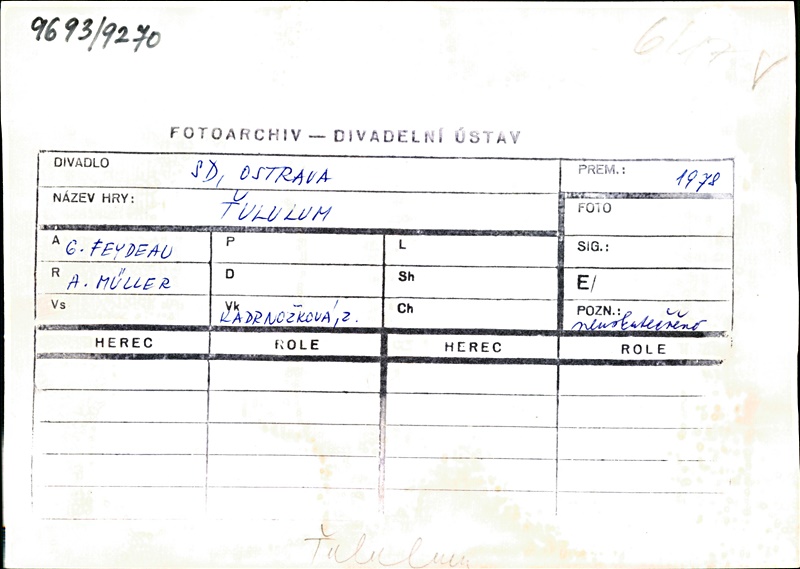 9693/9270
6/17 V
FOTOARCHIV — DIVADELNÍ ÚSTAV
DIVADLO SD, OSTRAVA PREM.: 1978
NÁZEV HRY: ŤULULUM FOTO
A G. FEYDEAU P L SIG.:
R A. MÜLLER D Sh E/
Vs Vk KADRNOŽKOVÁ, Z. Ch POZN.: neuskutečněno
HEREC ROLE HEREC ROLE
Ťululum